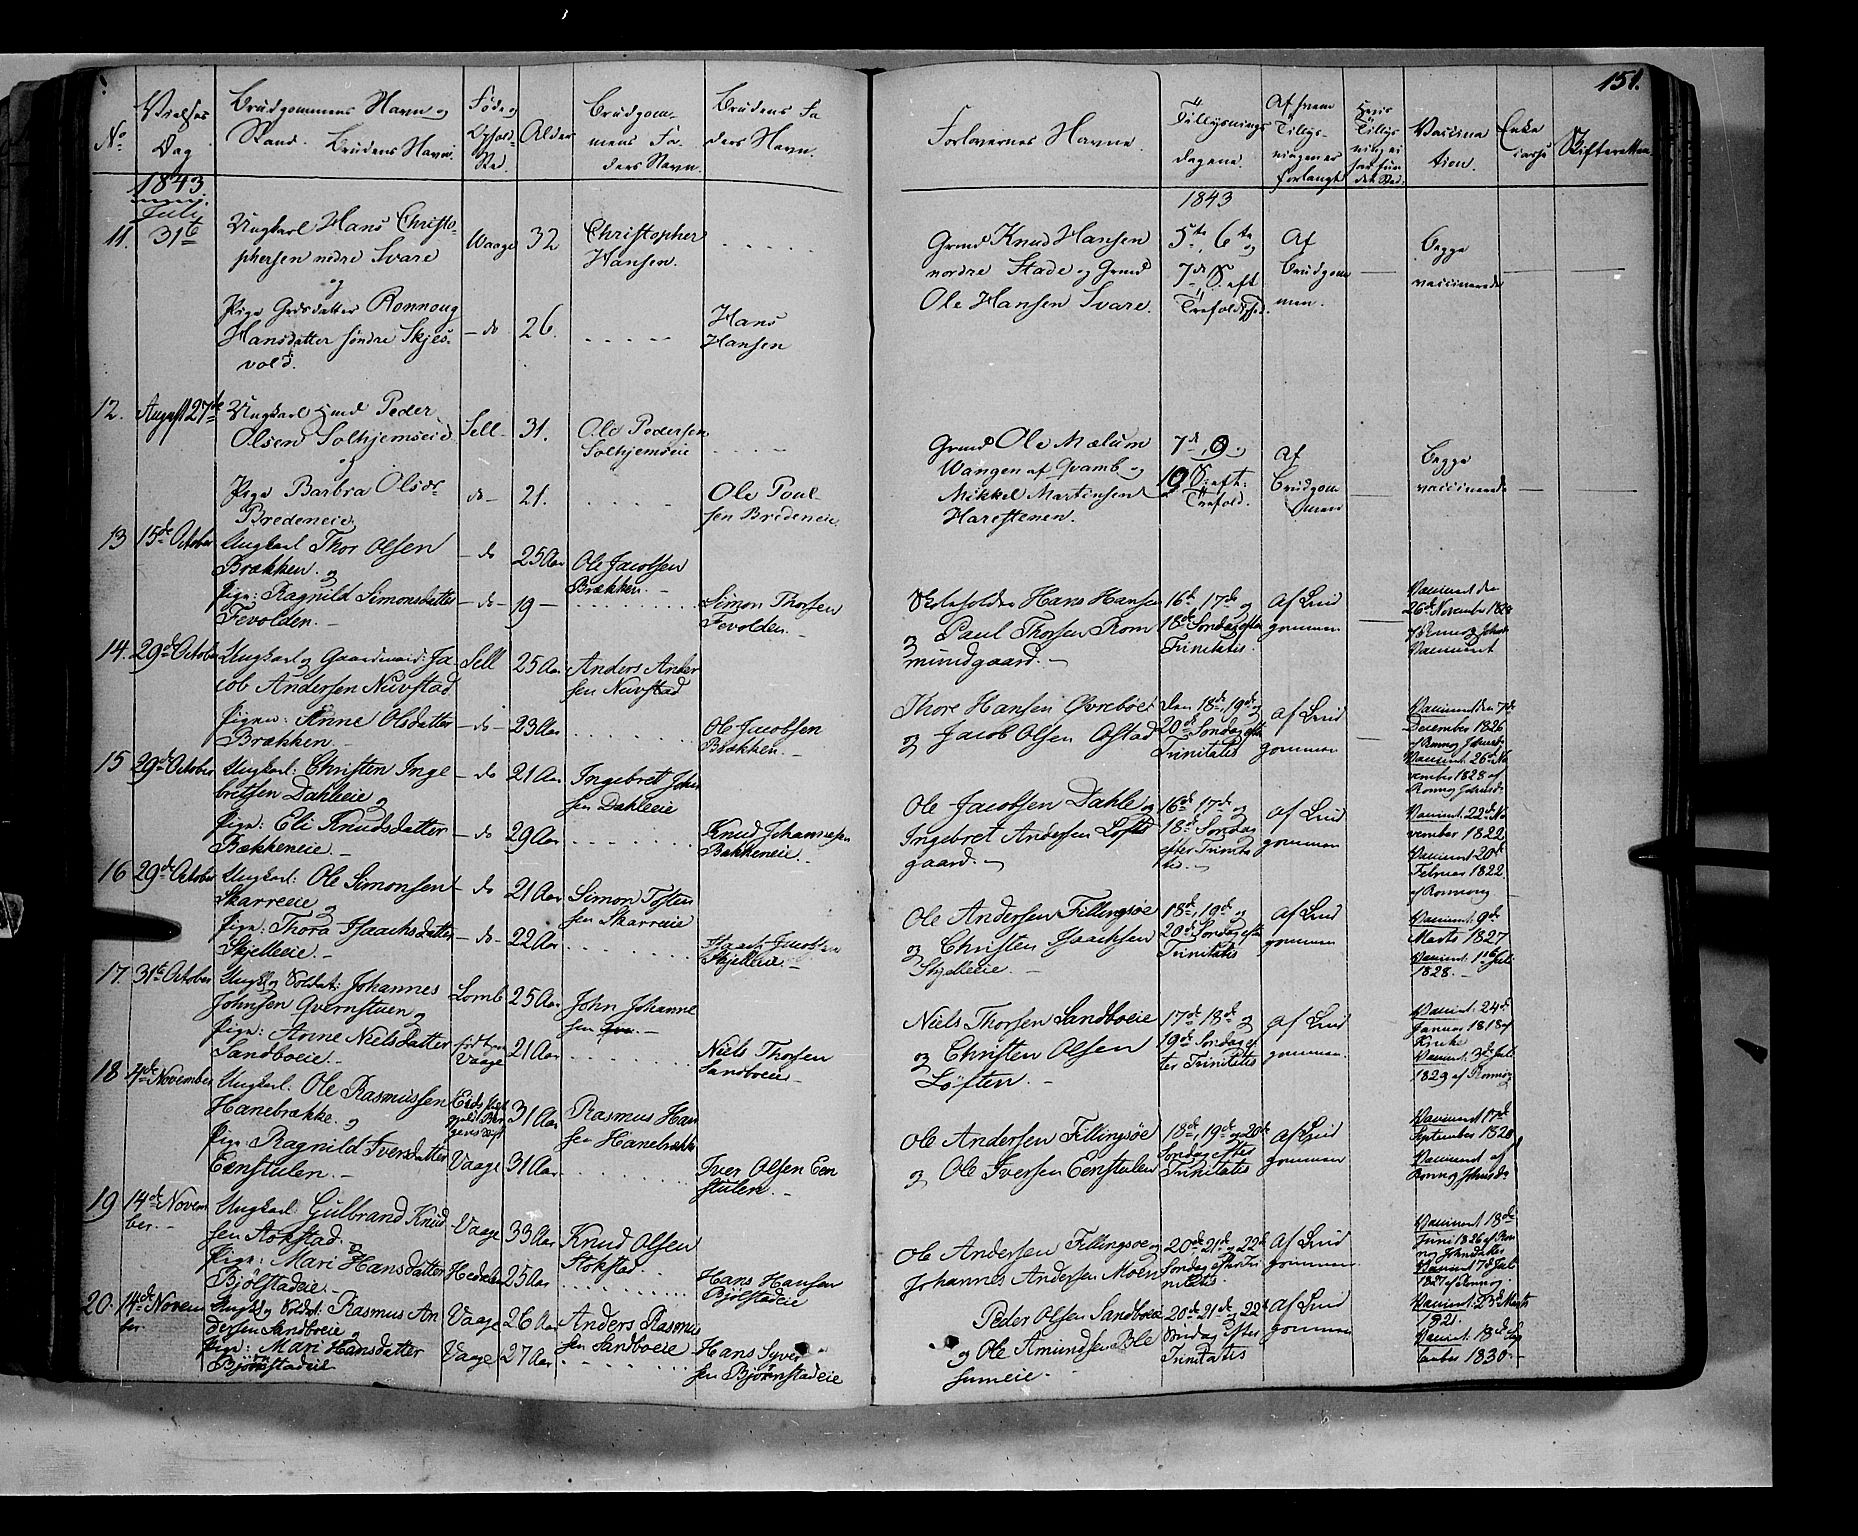 151.
No
Vielses Dag
Brudgommens Navn og Stand. Brudens Navn.
Føde og Opholds Sted.
Alder
Brudgommens Faders Navn.
Brudens Faders Navn.
Forlovernes Navne.
Tillysnings dagene.
Af hvem Tillysningen er forlangt
Hvis Tillysning ei har fundet Sted.
Vaccination.
Skifteretten
1843.
1843
11.
July
31te
Ungkarl Hans Christo-
phersen nedre Svare
og
Pige Grdsdatter Ronnoug
Hansdatter søndre Skjes-
vold.
Vaage
32
Christopher
Hansen.
- do
26.
Hans
Hansen
Grmd Knud Hansen
nordre Stade og Grmd
Ole Hansen Svare.
5te, 6te og
7de S. eft
Trefoldighed.
Af
Brudgom
men.
Begge
vaccinerede
12.
August 27de
Ungkarl Peder
Olsen Solhjemseie
og
Pige Barbra Olsdr
Bredeneie
Sell
31.
Ole Pedersen
Solhjemseie
do
21.
Ole Poul-
sen Bredeneie
Grmd Ole Mælum
Wangen af Qvamb. og
Mikkel Martinsen
Harestenen.
7de, 9 og
19 S. eft.
Trefold.
Af
Brudgom
men
Begge
vaccinerede
13
15de October
Ungkarl Thor Olsen
Brækken. og
Pign: Ragnild Simonsdatter
Fevolden.
- do
25 Aar
Ole Jacobsen
Brækken.
- do -
19 -
Simon Thorsen
Fevolden.
Hans Hansen
og Paul Thorsen Rom
mundgaard.
16de 17de og
18de Søndag efter
Trinitatis.
Af Brud
gommen
Vaccineret den
26de November 1828
Vaccineret
14.
29de October
Ungkarl og Gaardmand: Ja
cob Andersen Nuvstad
Pigen: Anne Olsdatter
Brækken
Sell
25 Aar
Anders Ander
sen Nuvstad
- do -
23 Aar
Ole Jacobsen
Brækken.
Thore Hansen Øvrebøe
og Jacob Olsen Ofstad
Den 18de, 19de og
20de Søndag efter
Trinitatis
af Brud
gommen
Vaccineret den 7de
December 1826
Vaccineret: 26de No
vember 1828 af
15
29de October
Ungkarl: Christen Inge
bretsen Dahleeie og
Pign: Eli Knudsdatter
Bækkeneie.
- do
21 Aar
Ingebret John
sen Dahleeie
- do
29 Aar
Knud Johannesen
Bækkeneie.
Ole Jacobsen Dahle og
Ingebret Andersen Lofts
gaard.
16de 17de og
18de Søndag
efter Trinita
tis.
af Brud
gommen
Vaccineret: 22de No
vember 1822
Vaccineret 20de
Februar 1822.
16
29de October
Ungkarl: Ole Simonsen
Skarreeie og
Pign: Thora Isaachsdatter
Skjelleie.
- do
21 Aar
Simon Tosten
sen Skarreie
- do -
22 Aar
Isaach Jacobsen
Skjelleie.
Ole Andersen Fillingsøe
og Christen Isaachsen
Skjelleie.
18de, 19de og
20de Søndag efter
Trinitatis
af Brud
gommen
Vaccineret: 9de
Marts 1827
1828.
17.
31te October
Ungk. og Soldat: Johannes
Johnsen Qvernstuen og
Pign: Anne Nielsdatter
Sandboeie.
Lomb
25 Aar
John Johanne
sen
Vaage
21 Aar
Niels Thorsen
Sandboeie
Niels Thorsen Sandboeie
og Christen Olsen
Løften.
17de 18de og
19de Søndag ef
ter Trinitatis
af Brud
gommen.
Vaccineret: 24de
Januar 1818 af
Vaccineret: 3de Juli
1829 af
18
4de November
Ungkarl: Ole Rasmussen
Hanebrække. og
Pign: Ragnild Iversdatter
Eenstulen.
31 Aar
Rasmus Han
sen Hanebrække
Vaage
31 Aar
Iver Olsen Een
stulen.
Ole Andersen Fillingsøe
og Ole Iversen Eenstulen
18de, 19de og 20de
Søndag efter
Trinitatis
af Brud
gommen
Vaccineret 17de
September 1820
Vaccineret af
19
14de Novem
ber.
Ungkarl Gulbrand Knud
sen Stokstad. og
Pign: Mari Hansdatter
Bjølstadeie.
Vaage
33 Aar
Knud Olsen
Stokstad.
Hedalen
25 Aar
Hans Hansen
Bjølstadeie
Ole Andersen Fillingsøe og
Johannes Andersen Moen
20de 21de og 22de
Søndag efter Tri
nitatis.
Af Brud
gommen
Vaccineret 18de
Juni 1826 af
Vaccineret 7de Juli
20.
14de Novem
ber.
Ungk. og Soldat: Rasmus An
dersen Sandboeie og
Pign: Mari Hansdatter
Bjørnstadeie
Vaage
26 Aar
Anders Rasmus
sen Sandboeie
Vaage
27 Aar
Hans Syver
sen Bjørnstadeie
Peder Olsen Sandboeie
og Ole Amundsen Ble
sumeie.
20de 21de og 22de
Søndag efter
Trinitatis
Af Brud
gommen
Vaccineret: 23de Marts
1821.
Vaccineret: 18de
1830.